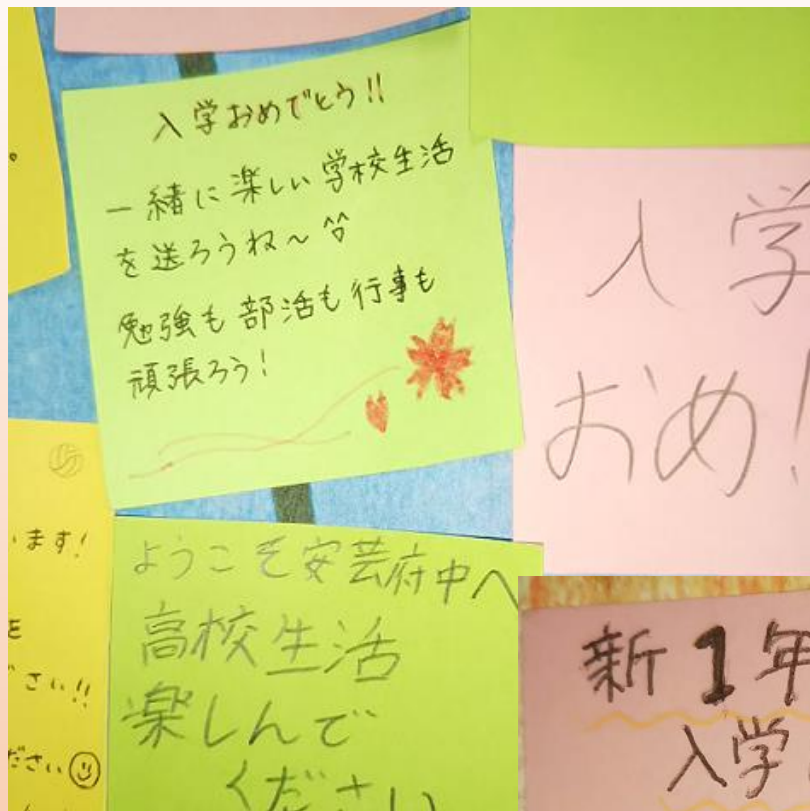 入学おめでとう!!
一緒に楽しい学校生活
を送ろうね〜^^
勉強も部活も行事も
頑張ろう!
入学
おめ!
ます!
を
さい!!
ださい
ようこそ安芸府中へ
高校生活
楽しんで
ください
新1年
入学